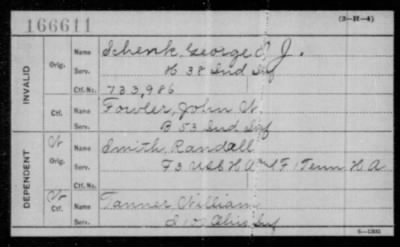 166611
(3-H-4)
INVALID
Orig.
Name Schenk, George J.
Serv. H 38 Ind Inf
Ctf. No. 733,986
Ctf.
Name Fowler, John W.
Serv. B 53 Ind Inf
DEPENDENT
W Orig.
Name Smith, Randall
Serv. F 3 US C H A and F 1 Tenn H A
Ctf.
Name Tanner William
Serv. 10 Ohio Inf
6-1331